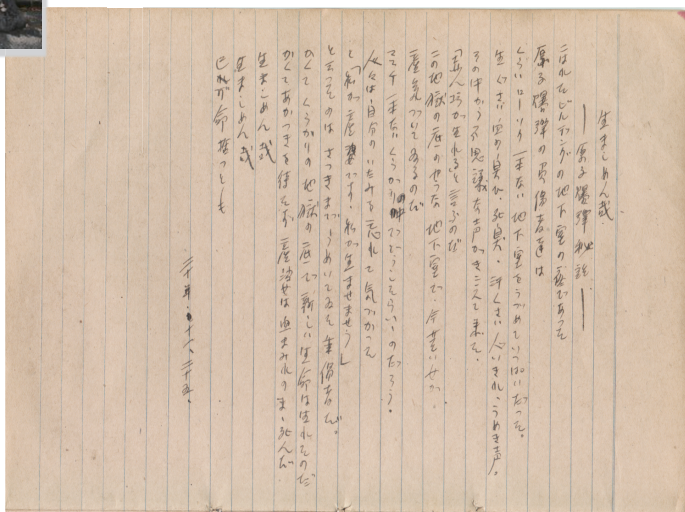 生ましめん哉
――原子爆弾秘話――
こはれたビルディングの地下室の夜であった
原子爆弾の負傷者達は
くらいローソク一本ない地下室をうづめていっぱいだった。
生ぐさい血の臭ひ、死臭、汗くさい人いきれ、うめき声。
その中から不思議な声がきこえて来た。
「赤ん坊が生れる」と言ふのだ
この地獄の底のやうな地下室で、今、若い女が
産気づいてゐるのだ
マッチ一本ないくらがりの中でどうしたらいゝのだらう。
人々は、自分のいたみを忘れて気づかった
と、「私が産婆です。私が生ませませう」
と云ったのは さっきまでうめいてゐた重傷者だ。
かくてくらがりの地獄の底で新しい生命は生れたのだ
かくてあかつきを待たず産婆は血まみれのまゝ死んだ
生ましめん哉
生ましめん哉
己が命捨つとも
二十年、十一、二十五、